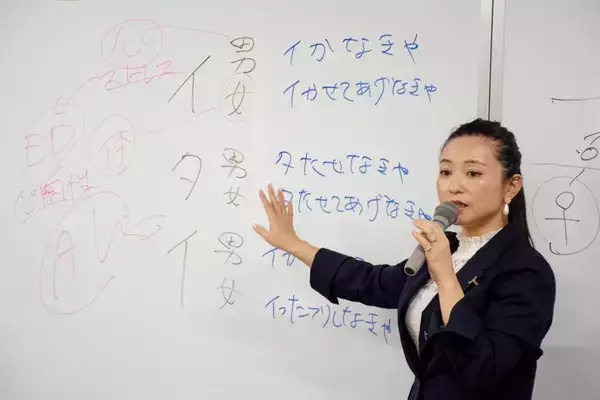 心
ED 体
AV
イ 男 イかなきゃ
女 イかせてあげなきゃ
タ 男 タたせなきゃ
女 タたせてあげなきゃ
イ 男 イか
女 イったフリしなきゃ
♀